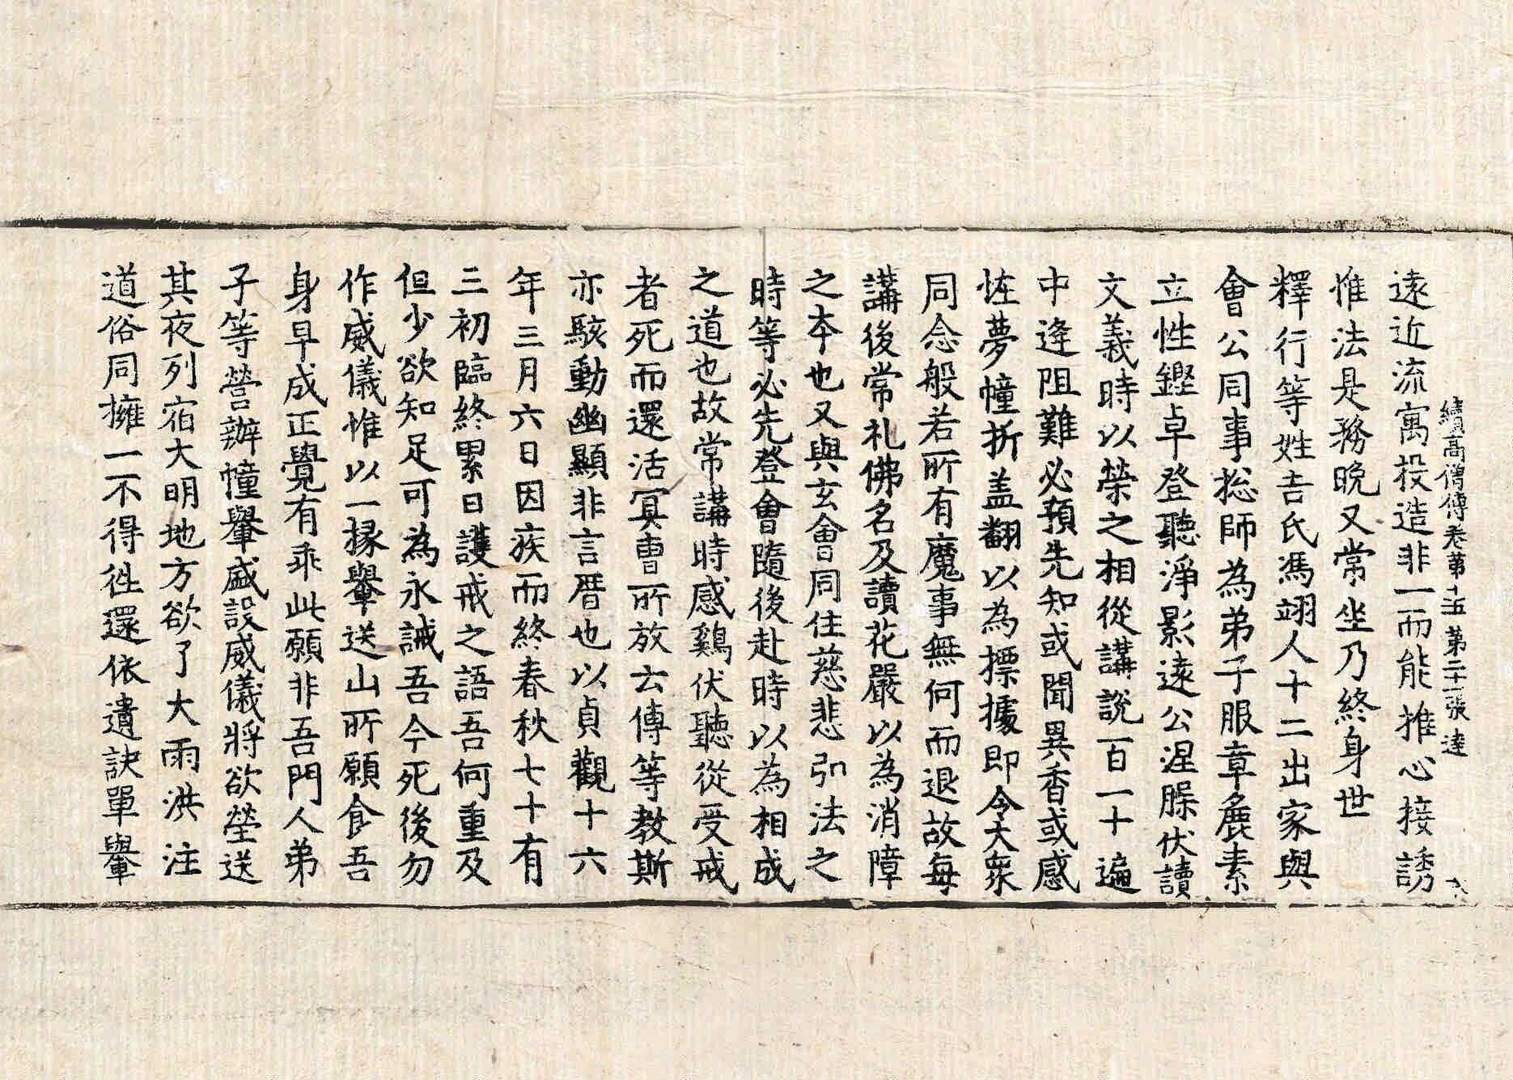 續高僧傳卷第十五 第二十一張 達
遠近流寓投造非一而能推心接誘
惟法是務晚又常坐乃終身世
釋行等姓吉氏馮翊人十二出家與
會公同事捴師為弟子服章麁素
立性鏗卓登聽淨影遠公涅槃伏讀
文義時以榮之相從講說百一十遍
中逄阻難必預先知或聞異香或感
恠夢幢折盖翻以為摽據即令大衆
同念般若所有魔事無何而退故每
講後常礼佛名及讀花嚴以為消障
之夲也又與玄會同住慈悲弘法之
時等必先登會隨後赴時以為相成
之道也故常講時感鷄伏聽從受戒
者死而還活冥曺所放云傳等教斯
亦駭動幽顯非言曆也以貞觀十六
年三月六日因疾而終春秋七十有
三初臨終累日護戒之語吾何重及
但少欲知足可為永誡吾今死後勿
作威儀惟以一椽轝送山所願食吾
身早成正覺有乖此願非吾門人弟
子等營辦幢轝盛設威儀將欲塋送
其夜列宿大明地方欲了大雨洪注
道俗同擁一不得徃還依遺訣單轝